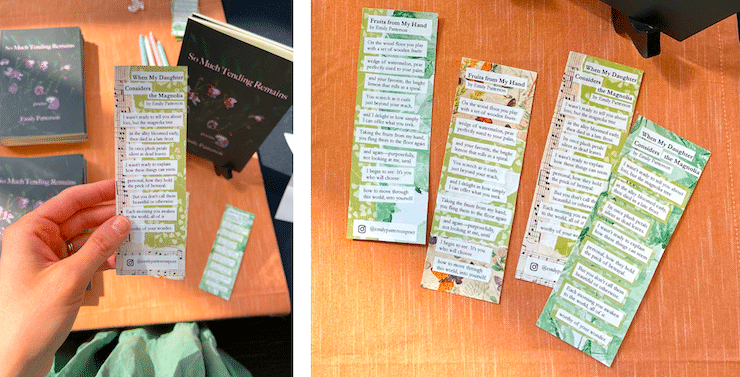 So Much Tending Remains
poems
Emily Patterson
So Much Tending Remains
So Much Tending Remains
poems
Emily Patterson
When My Daughter
Considers
the Magnolia
by Emily Patterson
I wasn't ready to tell you about
loss, but the magnolia tree
in the alley bloomed early
then died in a late frost.
Its once plush petals
silent as dead leaves.
I wasn't ready to explain
how these things can seem
personal, how they hold
the prick of betrayal.
But you don't call them
beautiful or otherwise.
Each morning you awaken
to the world, all of it
worthy of your wonder.
@emilypattersonpoet
Fruits from My Hand
by Emily Patterson
On the wood floor you play
with a set of wooden fruit:
wedge of watermelon, pear
perfectly sized to your palm,
and your favorite, the bright
lemon that rolls in a spiral.
You stretch as it curls
just beyond your reach,
and I delight in how simply
I can offer what you seek.
Taking the fruits from my hand,
you fling them to the floor
and again—purposefully,
not looking at me, until
I begin to see: It's you
who will choose
how to move through
this world, unto yourself.
@emilypattersonpoet
Fruits from My Hand
by Emily Patterson
On the wood floor you play
with a set of wooden fruit:
wedge of watermelon, pear
perfectly sized to your palm,
and your favorite, the bright
lemon that rolls in a spiral.
You stretch as it curls
just beyond your reach,
and I delight in how simply
I can offer what you seek.
Taking the fruits from my hand,
you fling them to the floor
and again—purposefully,
not looking at me, until
I begin to see: It's you
who will choose
how to move through
this world, unto yourself.
When My Daughter
Considers
the Magnolia
by Emily Patterson
I wasn't ready to tell you
loss, but the magnolia
in the alley bloomed
then died in a late
Its once plush petals
silent as dead leaves.
I wasn't ready to
how these things can
personal, how they
the prick of betrayal.
But you don't call
beautiful or
Each morning you
to the world, all of
worthy of your
@emily
When My Daughter
Considers the Magnolia
by Emily Patterson
I wasn't ready to tell you about
loss, but the magnolia tree
in the alley bloomed early
then died in a late frost.
Its once plush petals
silent as dead leaves.
I wasn't ready to explain
how these things can seem
personal, how they hold
the prick of betrayal.
But you don't call them
beautiful or otherwise.
Each morning you awaken
to the world, all of it
worthy of your wonder.